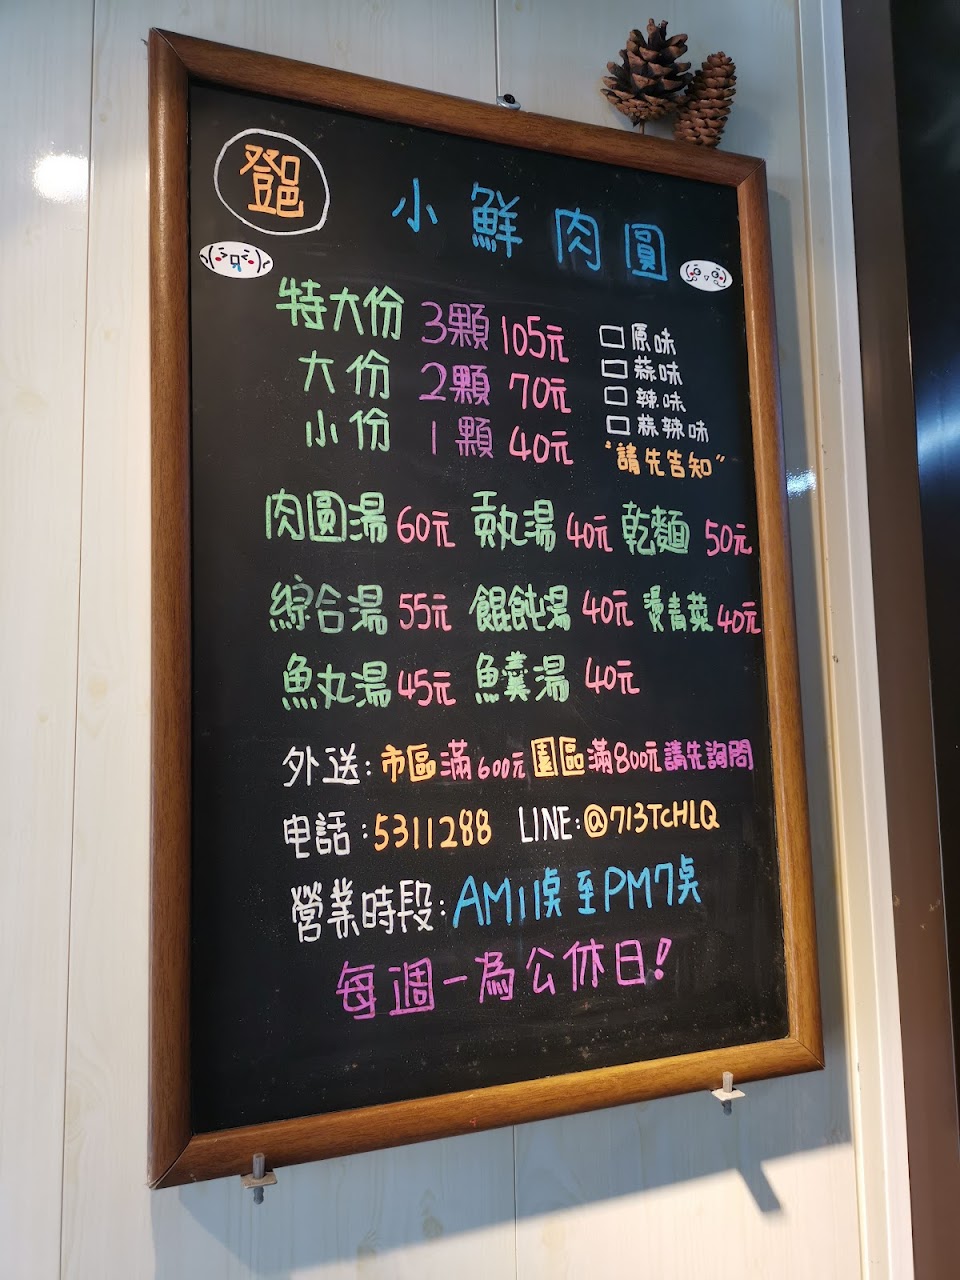 鄧
小鮮肉圓
特大份 3顆 105元 □原味
大份 2顆 70元 □蒜味
小份 1顆 40元 □辣味
□蒜辣味
"請先告知"
肉圓湯 60元 貢丸湯 40元 乾麵 50元
綜合湯 55元 餛飩湯 40元 燙青菜 40元
魚丸湯 45元 魚羹湯 40元
外送:市區滿600元園區滿800元請先詢問
电話:5311288 LINE:@713TCHLQ
營業時段:AM11點至PM7點
每週一為公休日!